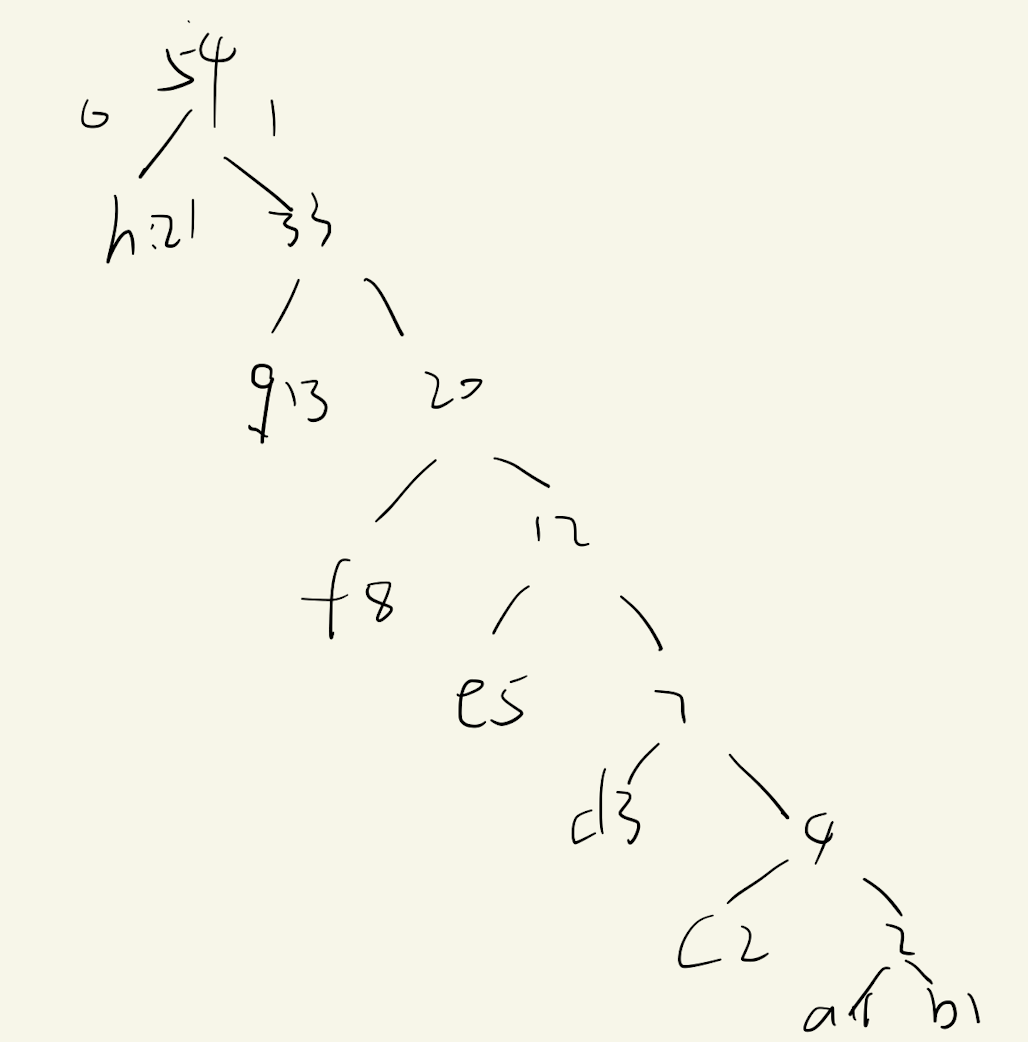 54
0 1
h:21 33
g13 20
12
f8
e5 7
d3
4
C2 2
a1 b1